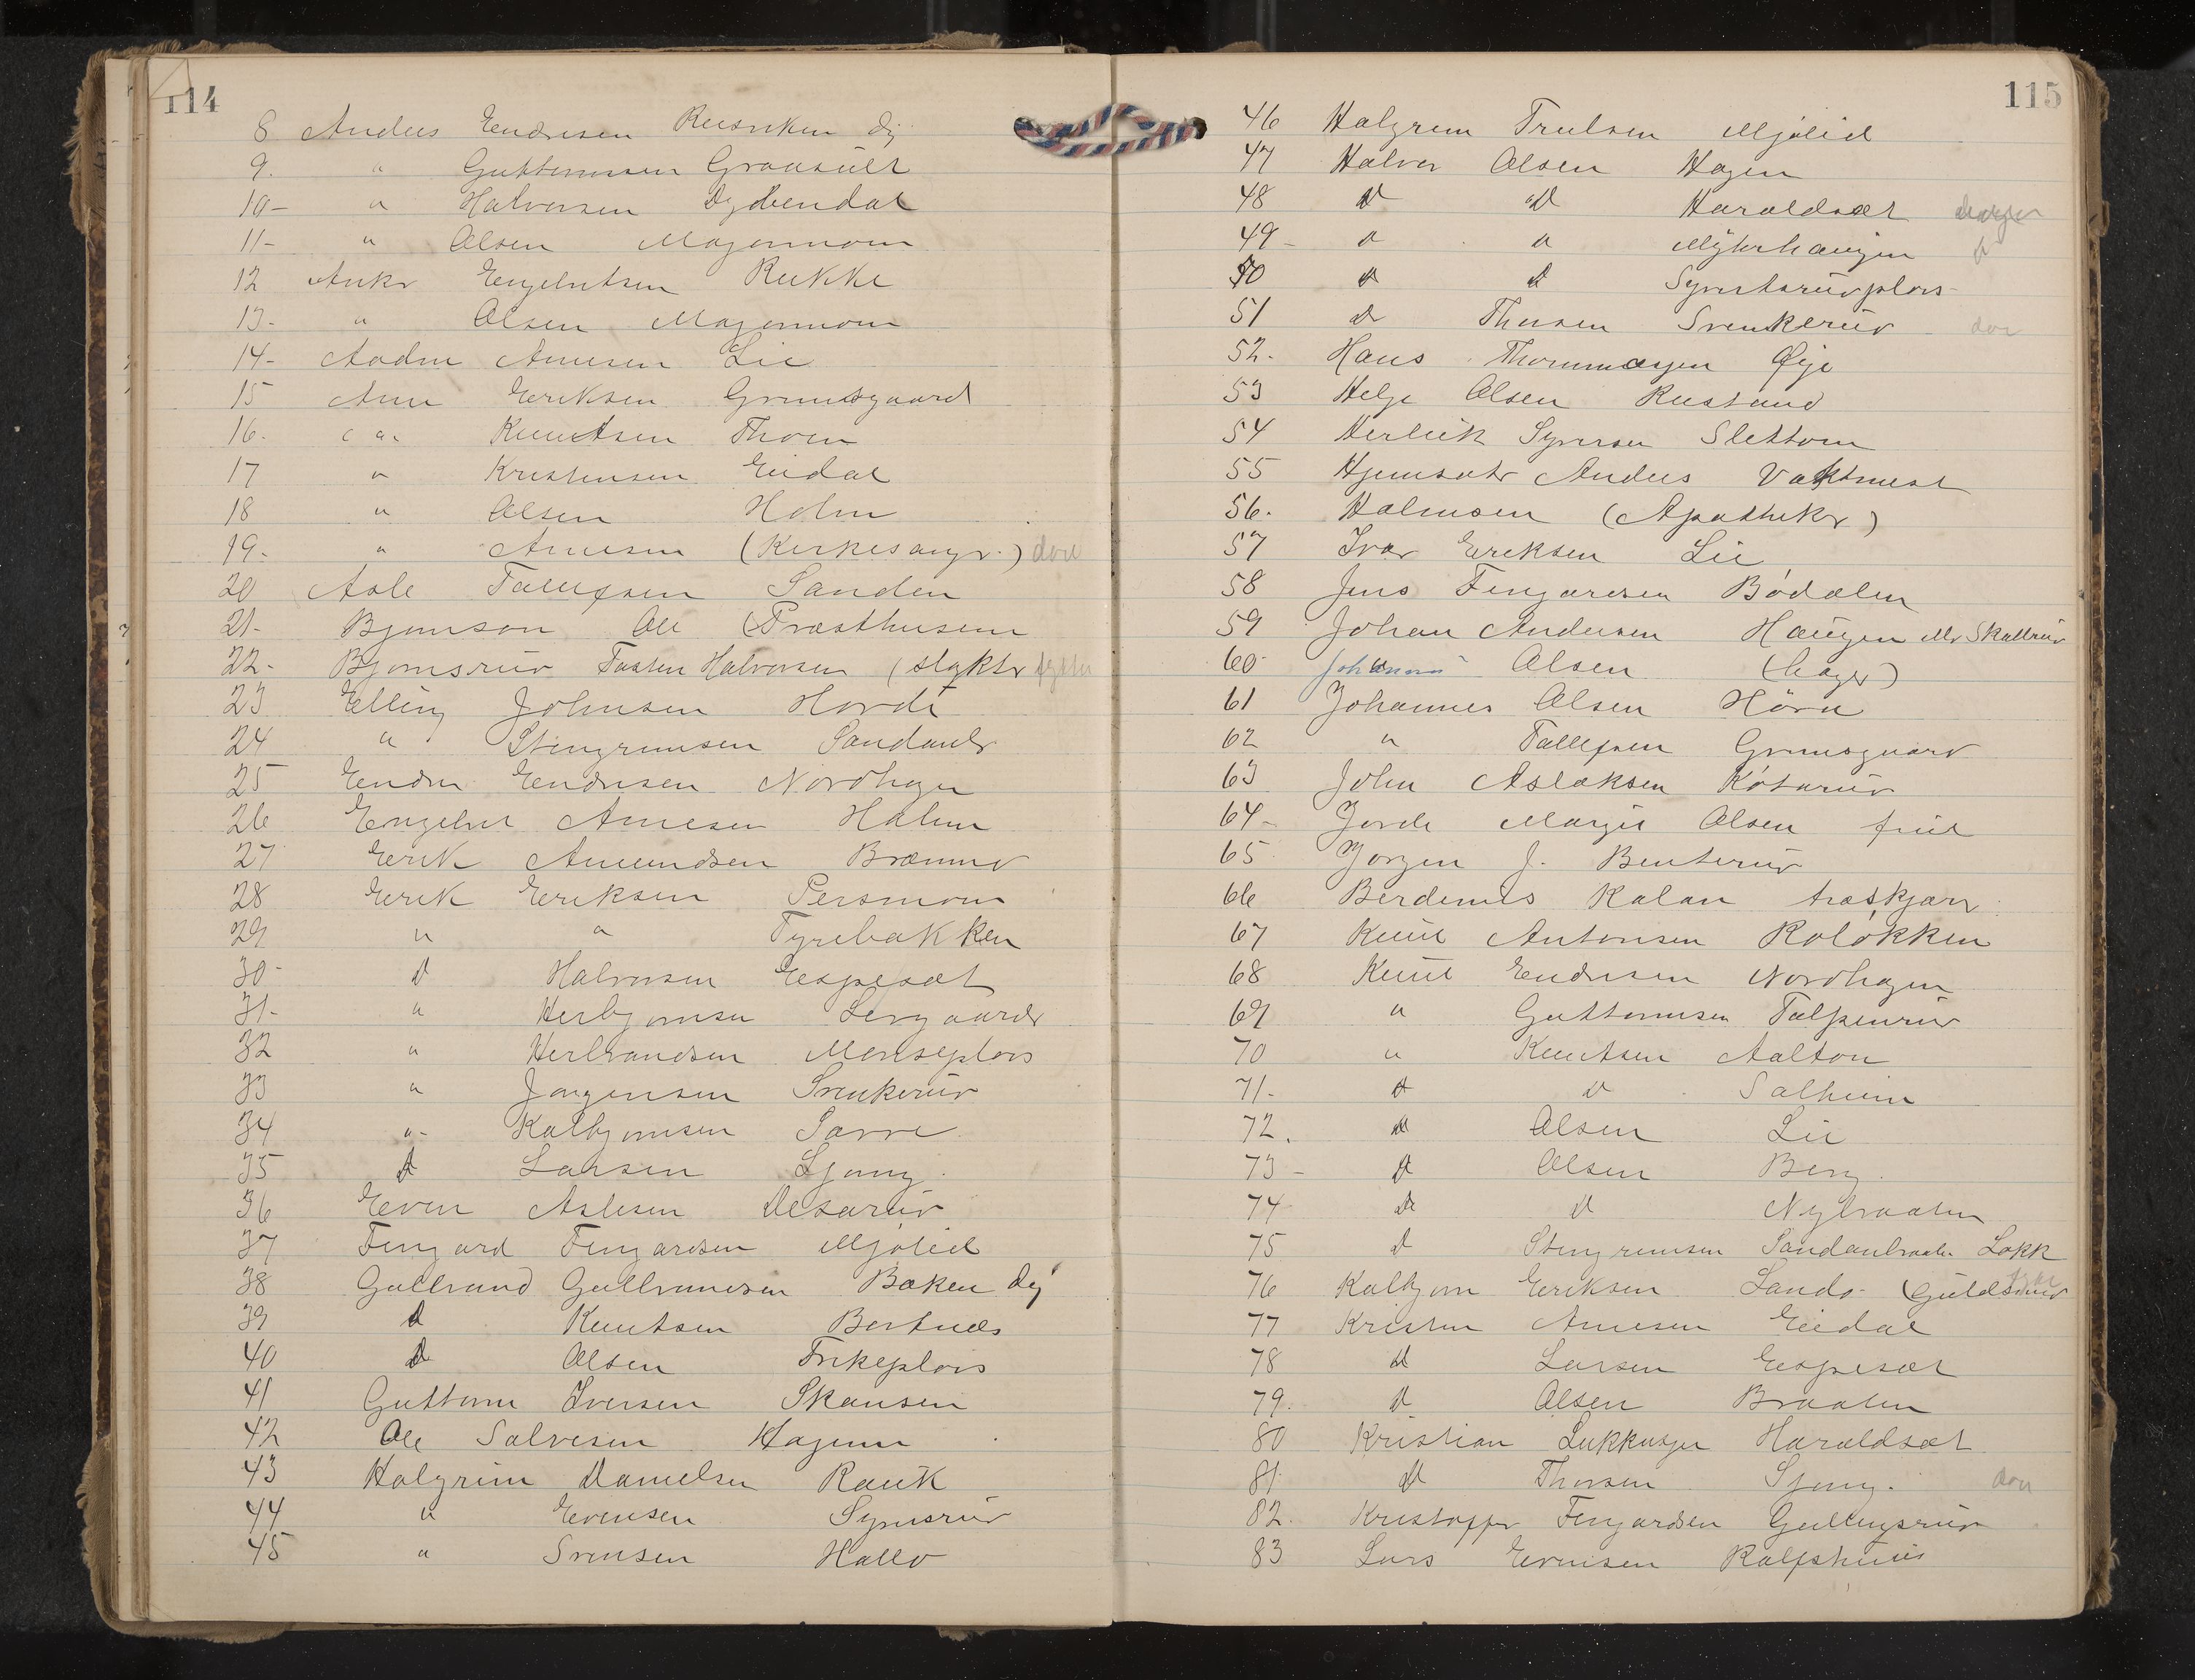 114
8 Anders Endresen Reisuken dy
9. " Guttormsen Graasült
10- " Halvorsen Dybendal
11- " Olsen Magormoen
12 Anker Engebretsen Rukke
13- " Olsen Magormoen
14- Andm Arnesen Lie
15 Arne Eriksen Grimsgaard
16. " Knutsen Thoen
17 " Kristensen Eidal
18 " Olsen Holm
19- " Arnesen (Kirkesanger.) død
20 Asle Tollefsen Sanden
21- Bjørnson Ole (Præsthusem
22- Bjørnsrüd Tosten Halvorsen (slakter
23 Elling Johnsen Horde
24 " Stengrimsen
25 Endre Endresen Nordhagen
26 Engebret Arnesen Halm
27 Erik Amundsen
28 Erik Eriksen Persmoen
29 " " Tyrebakken
30- d Halvorsen Espeset
31- " Herbjørnsen
32 " Herbrandsen Monseplas
33 " Jørgensen Svenkerüd
34 "- Kolbjørnsen Sarre
35 d Larsen Ljong.
36 Even Aslesen Desarüd
37 Fingard Fingardsen Mjølid
38 Gulbrand Gulbrandsen Bæken dy
39 d Knutsen Bortnes
40 d Olsen Frikeplas
41 Guttorm Iversen Skansen
42 Ole Salvesen Hagenn
43 Halgrim Danielsen Rauk
44 " Evensen Synsrüd
45 " Svensen Hallo
115
46 Halgrim Trulsen Mjølid
47 Halvor Olsen Hagen
48 d d Haraldset
49- " " Myhrhaugen d
50 d d
51 d Thorsen Svenkerüd død
52. Hans Thommasen Øye
53 Helge Olsen Rustand
54 Herleik Syversen Slettom
55 Hjemsæter Anders Vaktmest
56. Halmsen (Apotheker)
57 Ivar Eriksen Lie
58 Jens Fingardsen Bødalen
59 Johan Andersen Haugen
60- Johannes Olsen (bager)
61 Johannes Olsen Hörn
62 " Tollefsen Grimsgaard
63 John Aslaksen Køtarüd
64- Jorde Margit Olsen frue
65 Jørgen J. Benterüd
66 Berdenes Kalan træskjærer
67 Knut Antonsen Roløkken
68 Knut Endresen Nordhagen
69 " Guttormsen Tolpenrüd
70 " Knutsen Aalton
71- d d Solheim
72. d Olsen Lie
73- d Olsen Berg.
74 d d Nybraaten
75 d Stengrimsen Sandanbraaten Løkk
76 Kolbjørn Eriksen Sando- (Guldsmed
77 Kristen Arnesen Eidal
78 d Larsen Espeset
79. d Olsen Braaten
80 Kristian Haraldset
81 d Thorsen Ljong. død
82. Kristoffer Fingardsen Gullingsrüd
83 Lars Evensen Rolfshüus